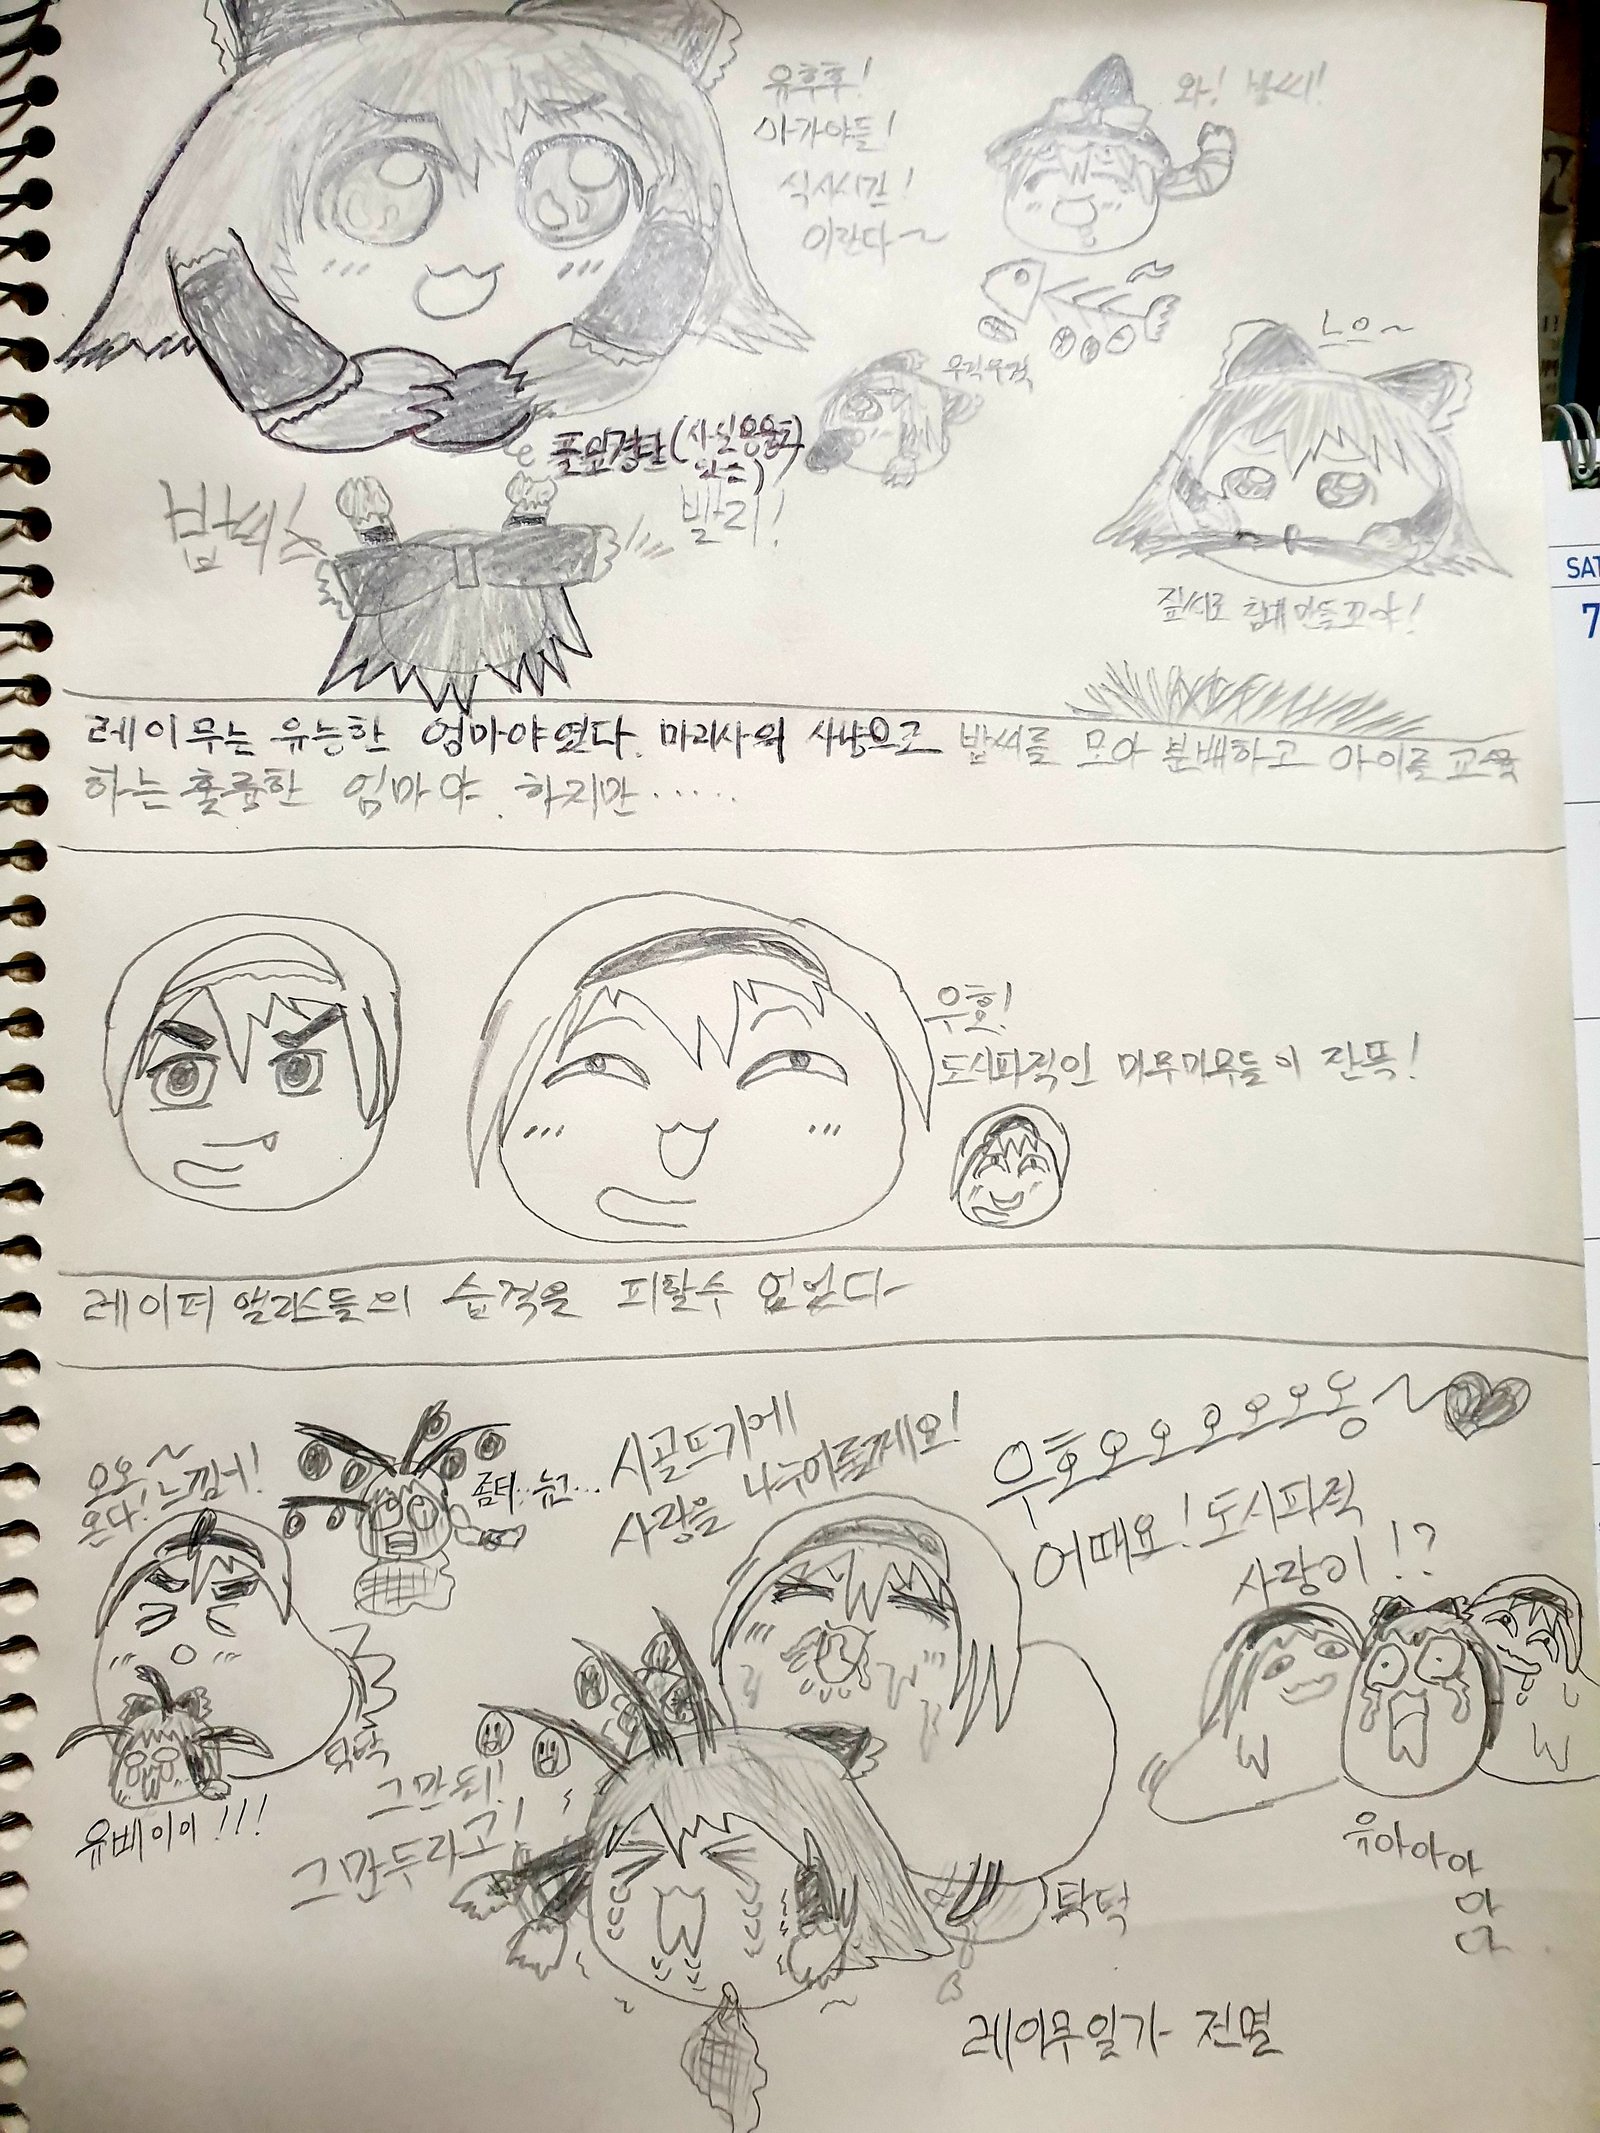 유후후!
아가야들!
식사시간!
이란다~
와! 밥씨!
우걱우걱
느으~
풀잎경단(사실응응도
있슴)
빨리!
짚씨로 침대만들꼬야!
레이무는 유능한 엄마야였다. 마리사의 사냥으로 밥씨를 모아 분배하고 아이를 교육
하는 훌륭한 엄마야. 하지만.....
우호!
도시파적인 마무마무들이 잔뜩!
레이퍼 앨리스들의 습격을 피할수 없었다
오오~
온다! 느낌이!
좀더..
시골뜨기에
사랑을 나누어줄게요!
우호오오오오오오옹~
어때요! 도시파적
사랑이!?
탁턱
유삐이이!!!
그만둬!
그만두라고!
탁턱
유아아아
앗
아
레이무일가 전멸
SAT
7